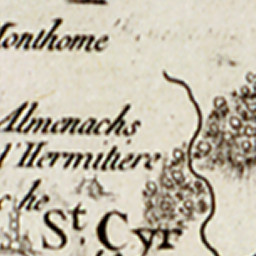 Monthome
Almenachs
l'Hermitiere
he
St. Cyr